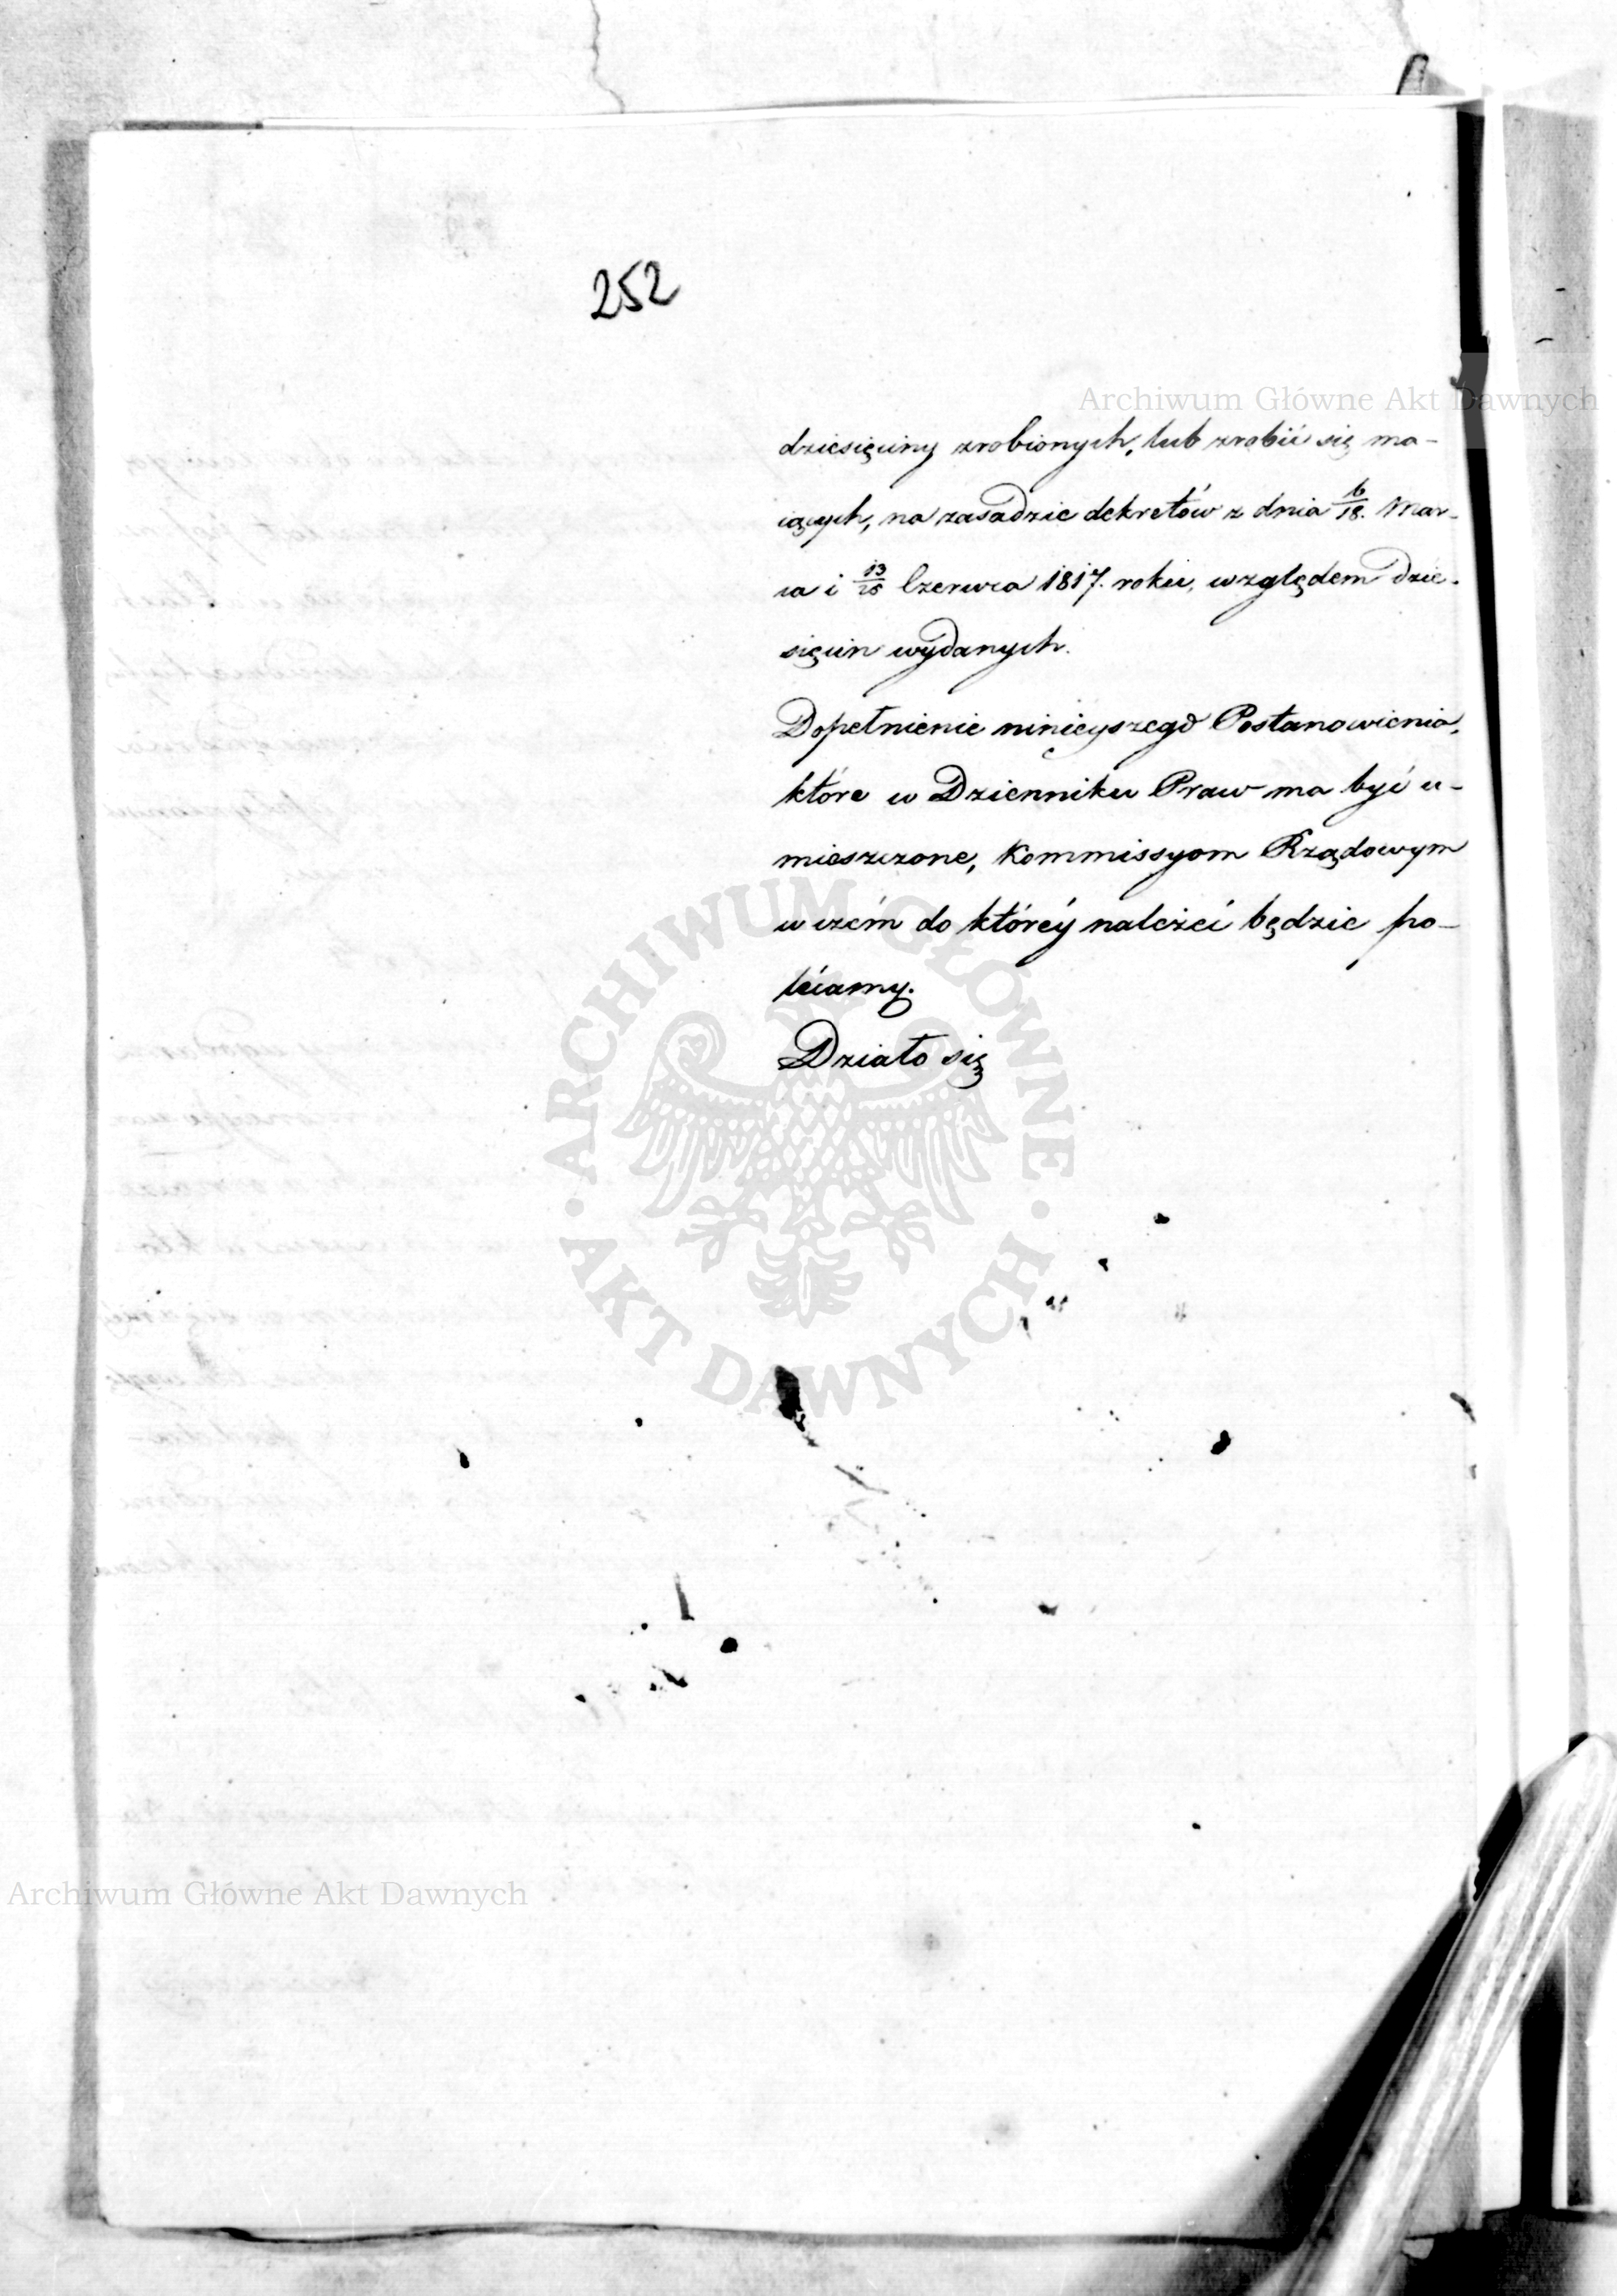 252
Archiwum Główne Akt Dawnych
dziesięciny zrobionych, lub zrobić się ma-
iących, na zasadzie dekretów z dnia 6/18. Mar-
ca i 13/25 Czerwca 1817. roku, względem dzie-
sięcin wydanych.
Dopełnienie ninieyszego Postanowienia,
które w Dzienniku Praw ma być u-
mieszczone, Kommissyom Rządowym
w czém do któréy należéć będzie po-
léciamy.
Działo się
ARCHIWUM GŁÓWNE
AKT DAWNYCH
Archiwum Główne Akt Dawnych